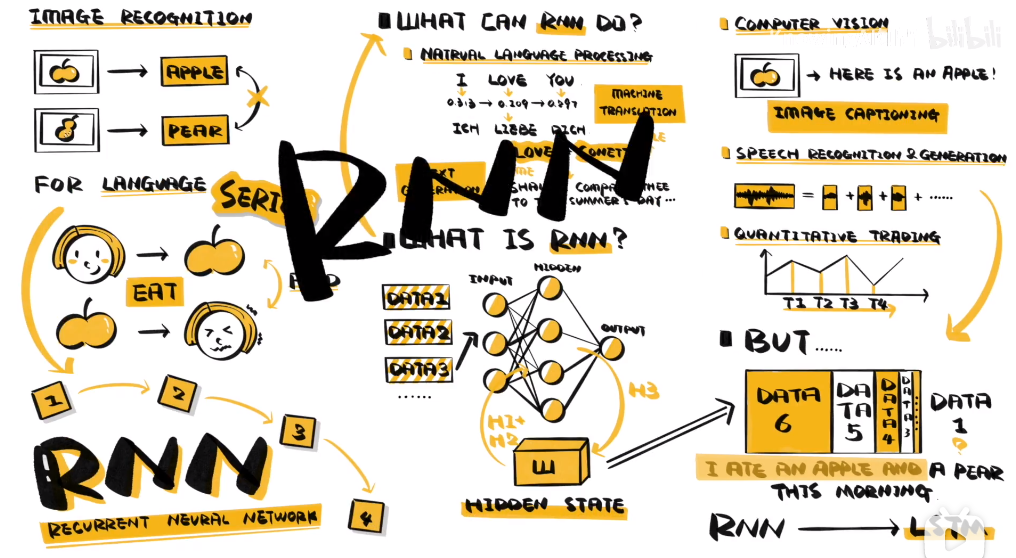 IMAGE RECOGNITION
APPLE
PEAR
FOR LANGUAGE
EAT
1
2
3
4
RNN
RECURRENT NEURAL NETWORK
WHAT CAN RNN DO?
NATRUAL LANGUAGE PROCESSING
I LOVE YOU
0.313 → 0.209 → 0.397
MACHINE
TRANSLATION
ICH LIEBE DICH
LOVE
SUMMER'S DAY...
RNN
WHAT IS RNN?
INPUT
HIDDEN
OUTPUT
DATA1
DATA2
DATA3
......
H1+
H2
H3
W
HIDDEN STATE
COMPUTER VISION
bilibili
HERE IS AN APPLE!
IMAGE CAPTIONING
SPEECH RECOGNITION & GENERATION
= + + + ......
QUANTITATIVE TRADING
T1 T2 T3 T4
BUT......
DATA
6
DATA
5
DATA4
DATA3
DATA
1
I ATE AN APPLE AND A PEAR
THIS MORNING
RNN
LSTM